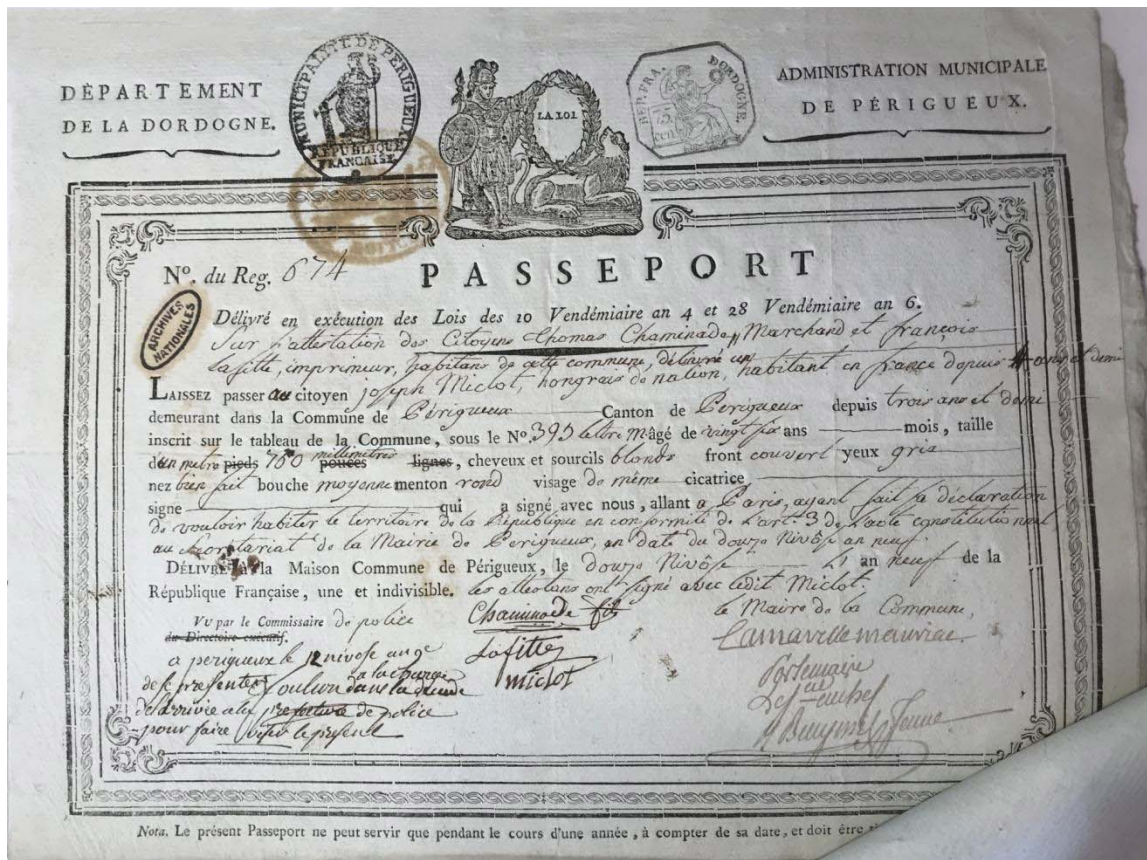 DÉPARTEMENT
DE LA DORDOGNE.
MUNICIPALITÉ DE PERIGUEUX
RÉPUBLIQUE
FRANÇAISE
LA LOI
REP. FRA. DORDOGNE.
75
cen
ADMINISTRATION MUNICIPALE
DE PÉRIGUEUX.
Nº. du Reg. 674
PASSEPORT
ARCHIVES
NATIONALES
Délivré en exécution des Lois des 10 Vendémiaire an 4 et 28 Vendémiaire an 6.
Sur l'attestation des Citoyens Thomas Chaminade, Marchand et françois
lafitte, imprimeur, habitans de cette commune, délivré un
LAISSEZ passer au citoyen joseph Miclot, hongrais de nation, habitant en france depuis 4 ans et demi
demeurant dans la Commune de Périgueux Canton de Perigueux depuis trois ans et demi
inscrit sur le tableau de la Commune, sous le Nº. 393 lettre M âgé de vingt six ans mois, taille
d'un metre pieds 750 millimetres pouces lignes, cheveux et sourcils blonds front couvert yeux gris
nez bien fait bouche moyenne menton rond visage de même cicatrice
signe qui a signé avec nous, allant a Paris, ayant fait sa déclaration
de vouloir habiter le territoire de la République en conformité de l'art. 3 de l'acte constitutionnel
au Secrétariat de la Mairie de Perigueux, en date du douze Nivôse an neuf.
DÉLIVRÉ à la Maison Commune de Périgueux, le douze Nivôse an neuf de la
République Française, une et indivisible. les attestans ont signé avec ledit Miclot.
Vu par le Commissaire de police
du Directoire exécutif.
a perigueux le 12 nivose an 9
a la charge
de se presenter dans la
de l'arrivée a la prefecture de police
pour faire viser le présent
Chaminade fils
Lafitte
miclot
le Maire de la Commune,
Nota. Le présent Passeport ne peut servir que pendant le cours d'une année, à compter de sa date, et doit être